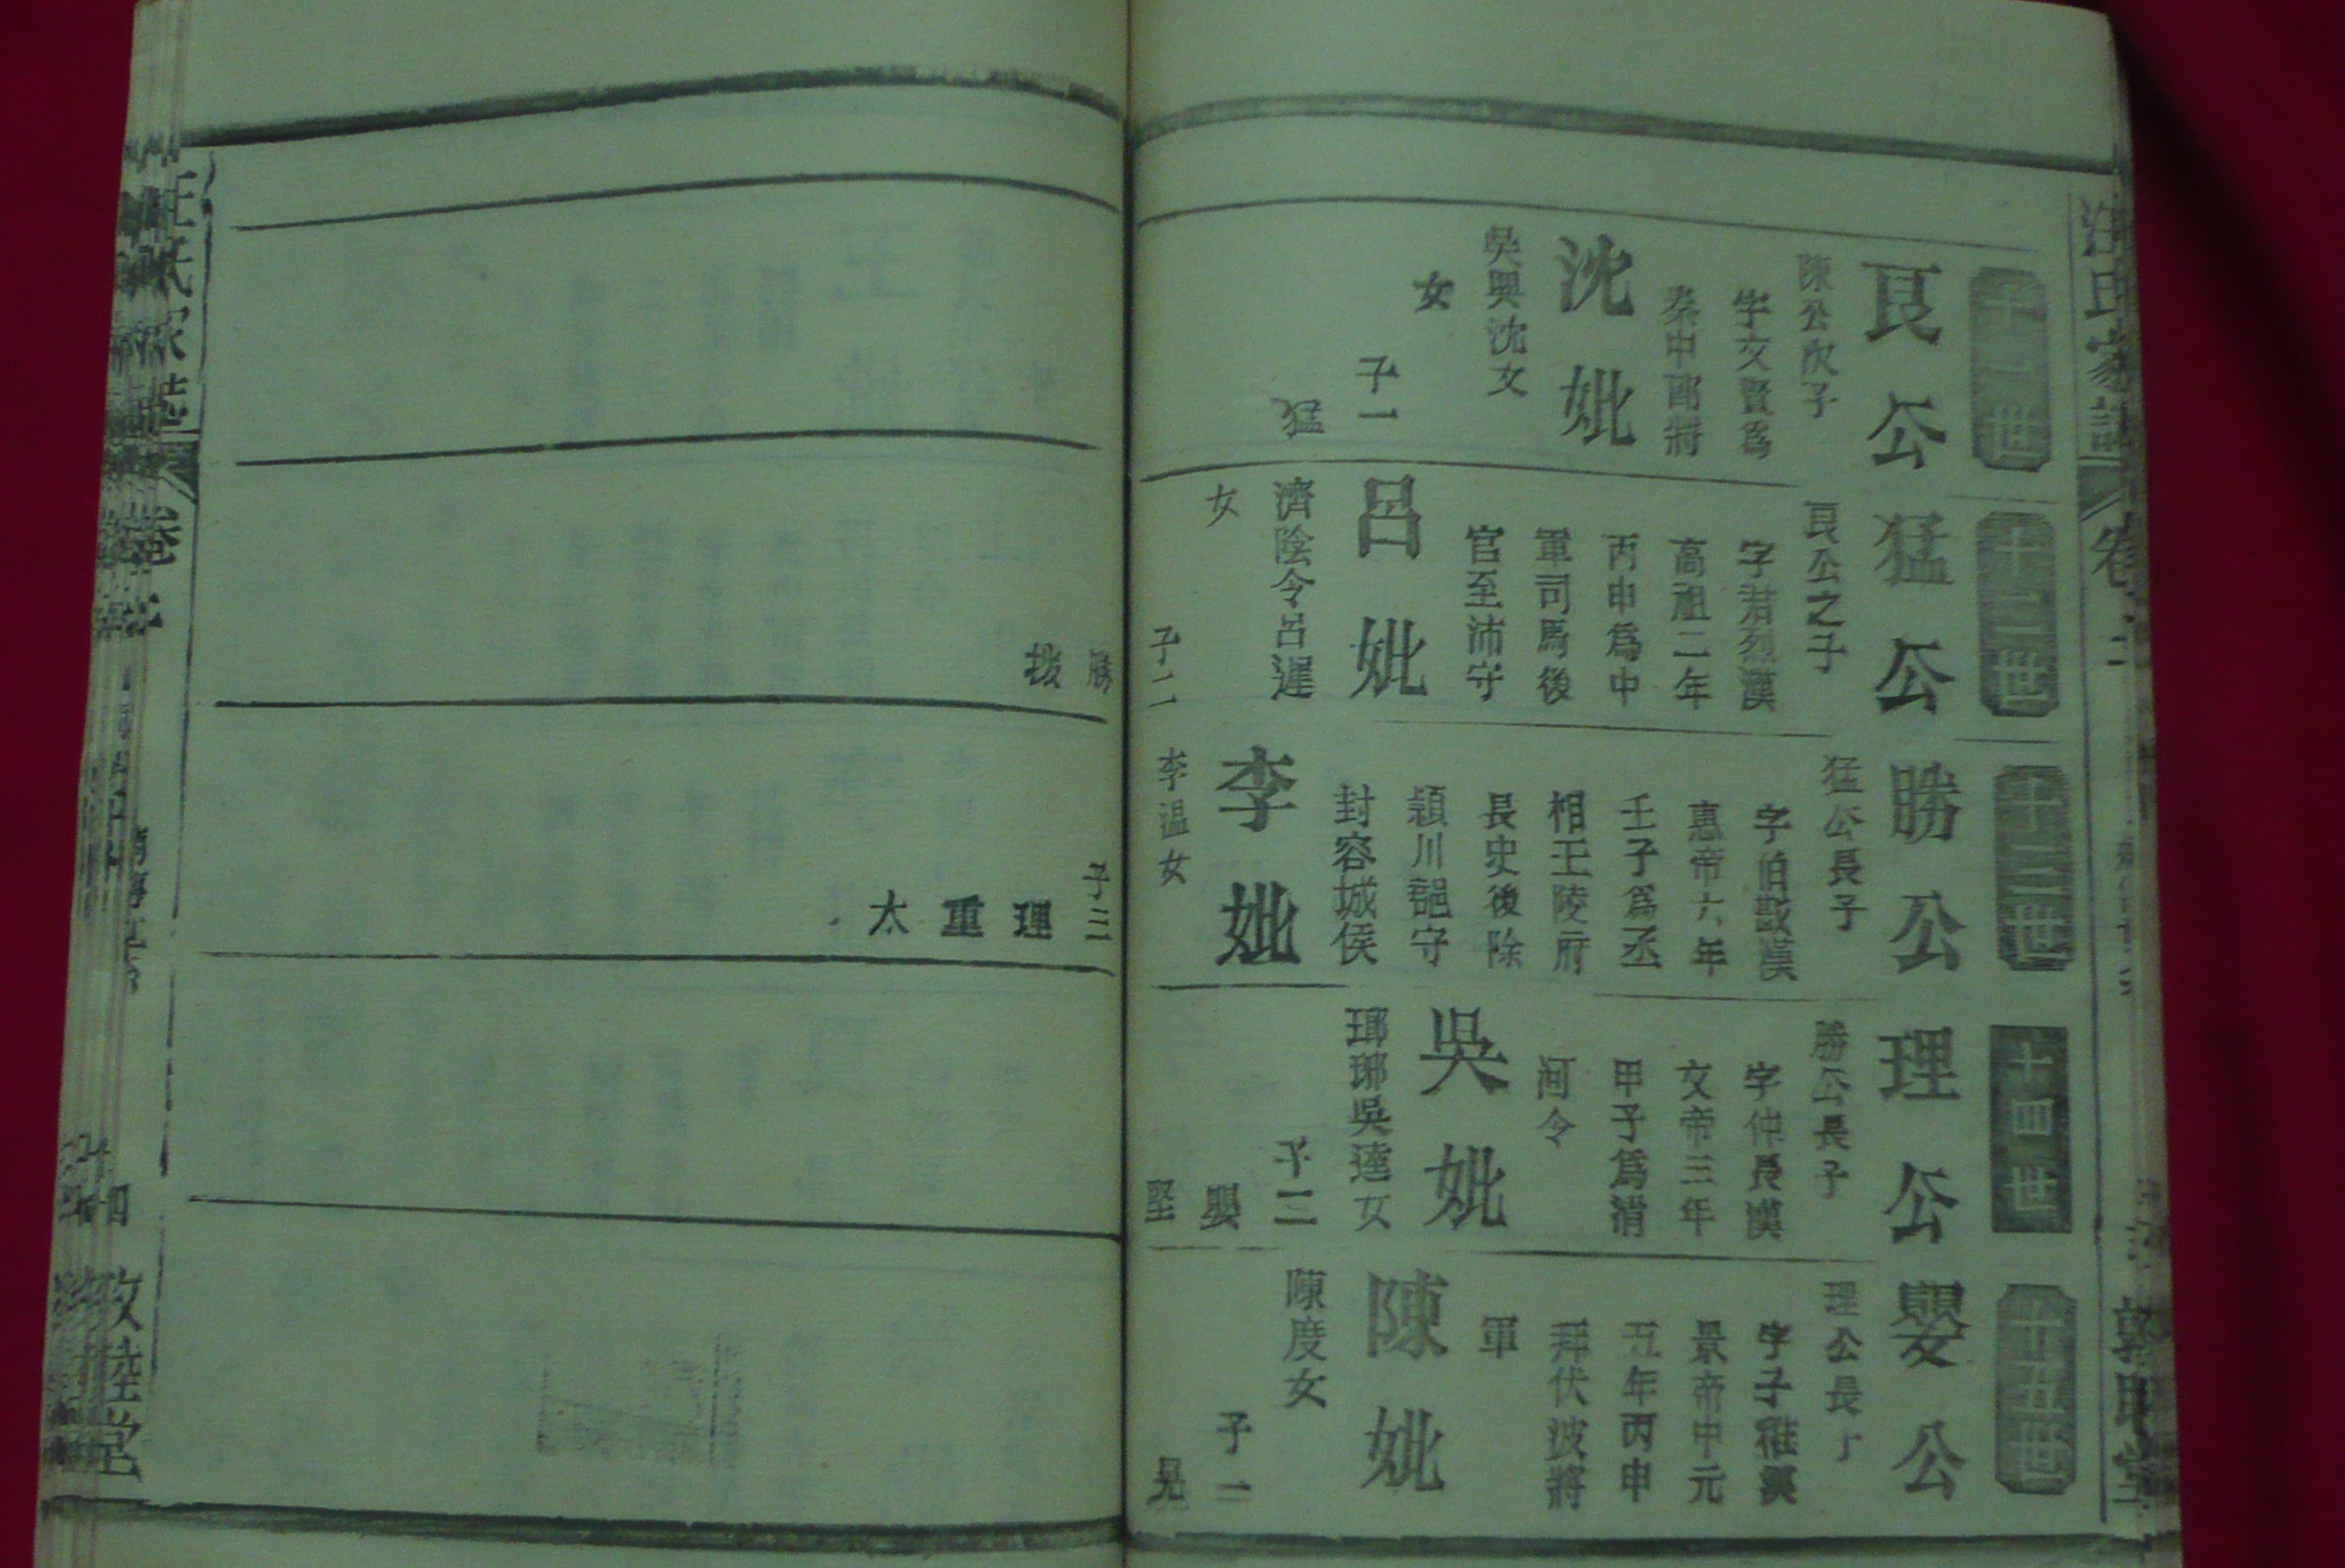 汪氏家譜
卷二
敦睦堂
十一世
艮公
陳公次子
字文賢為
秦中郎將
沈妣
吳興沈女
女
子一
猛
十二世
猛公
艮公之子
字君烈漢
高祖二年
丙申為中
軍司馬後
官至沛守
呂妣
濟陰令呂遲
女
子二
勝
拔
十三世
勝公
猛公長子
字伯敭漢
惠帝六年
壬子爲丞
相王陵府
長史後除
潁川郡守
封容城侯
李妣
李溫女
子三
理
重
太
十四世
理公
勝公長子
字仲長漢
文帝三年
甲子爲清
河令
吳妣
瑯琊吳逵女
子二
嬰
堅
十五世
嬰公
理公長子
字子稚漢
景帝中元
五年丙申
拜伏波將
軍
陳妣
陳度女
子一
汪氏家譜
卷二
四
敦睦堂